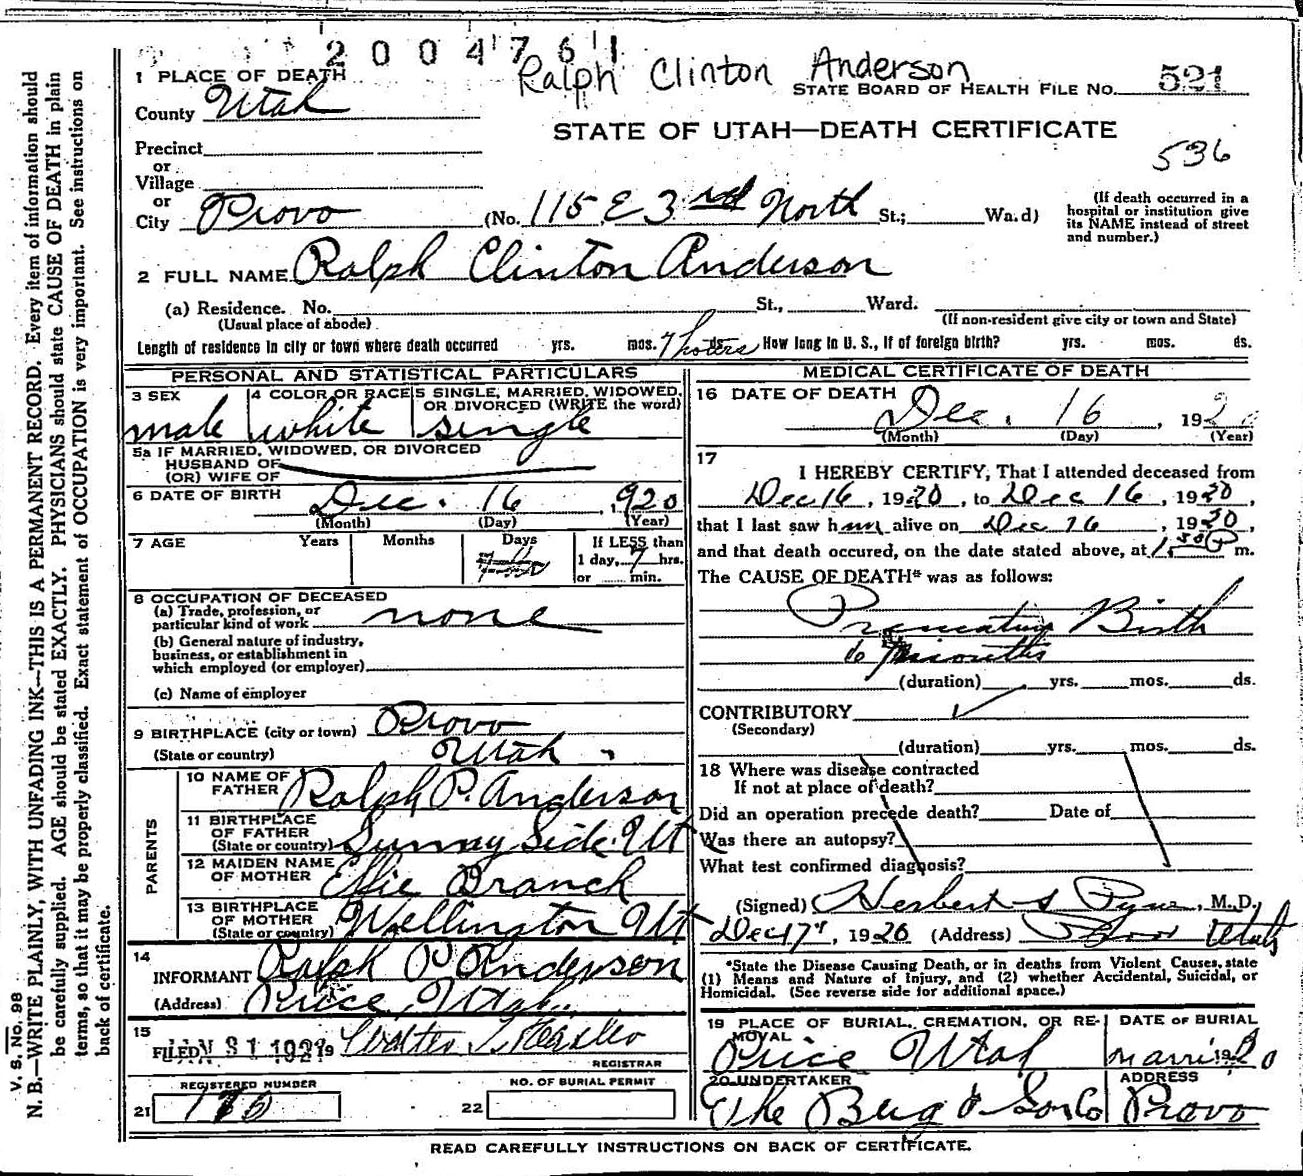 2004761
Ralph Clinton Anderson
1 PLACE OF DEATH
STATE BOARD OF HEALTH FILE No. 521
County Utah
STATE OF UTAH—DEATH CERTIFICATE
536
Precinct
or
Village
or
City Provo (No. 115 E 3rd North St.; Wa.d)
(If death occurred in a
hospital or institution give
its NAME instead of street
and number.)
2 FULL NAME Ralph Clinton Anderson
(a) Residence. No. St., Ward.
(Usual place of abode) (If non-resident give city or town and State)
Length of residence in city or town where death occurred yrs. mos. 7 hours ds. How long in U. S., if of foreign birth? yrs. mos. ds.
PERSONAL AND STATISTICAL PARTICULARS
3 SEX
male
4 COLOR OR RACE
white
5 SINGLE, MARRIED, WIDOWED,
OR DIVORCED (WRITE the word)
single
5a IF MARRIED, WIDOWED, OR DIVORCED
HUSBAND OF
(OR) WIFE OF
6 DATE OF BIRTH Dec. 16, 1920
(Month) (Day) (Year)
7 AGE Years Months Days If LESS than
1 day, 7 hrs.
or min.
8 OCCUPATION OF DECEASED
(a) Trade, profession, or
particular kind of work none
(b) General nature of industry,
business, or establishment in
which employed (or employer)
(c) Name of employer
9 BIRTHPLACE (city or town) Provo
(State or country) Utah
PARENTS
10 NAME OF
FATHER Ralph P. Anderson
11 BIRTHPLACE
OF FATHER
(State or country) Sunny Side. Ut
12 MAIDEN NAME
OF MOTHER Effie Branch
13 BIRTHPLACE
OF MOTHER
(State or country) Wellington Ut
14
INFORMANT Ralph P Anderson
(Address) Price, Utah.
15
FILED JAN 31 192
REGISTRAR
REGISTERED NUMBER
21
NO. OF BURIAL PERMIT
22
MEDICAL CERTIFICATE OF DEATH
16 DATE OF DEATH
Dec. 16, 192
(Month) (Day) (Year)
17
I HEREBY CERTIFY, That I attended deceased from
Dec 16, 1920, to Dec 16, 1920,
that I last saw him alive on Dec 16, 1920,
and that death occured, on the date stated above, at m.
The CAUSE OF DEATH* was as follows:
Premature Birth
6 months
(duration) yrs. mos. ds.
CONTRIBUTORY
(Secondary)
(duration) yrs. mos. ds.
18 Where was disease contracted
If not at place of death?
Did an operation precede death? Date of
Was there an autopsy?
What test confirmed diagnosis?
(Signed) Herbert S Pyne, M.D.
Dec 17, 1920 (Address) Provo Utah
*State the Disease Causing Death, or in deaths from Violent Causes, state
(1) Means and Nature of Injury, and (2) whether Accidental, Suicidal, or
Homicidal. (See reverse side for additional space.)
19 PLACE OF BURIAL, CREMATION, OR RE-
MOVAL
Price Utah
DATE OF BURIAL
20 UNDERTAKER
The Berg & Sons Co
ADDRESS
Provo
READ CAREFULLY INSTRUCTIONS ON BACK OF CERTIFICATE.
V. S. No. 98
N. B.—WRITE PLAINLY, WITH UNFADING INK—THIS IS A PERMANENT RECORD. Every item of information should
be carefully supplied. AGE should be stated EXACTLY. PHYSICIANS should state CAUSE OF DEATH in plain
terms, so that it may be properly classified. Exact statement of OCCUPATION is very important. See instructions on
back of certificate.